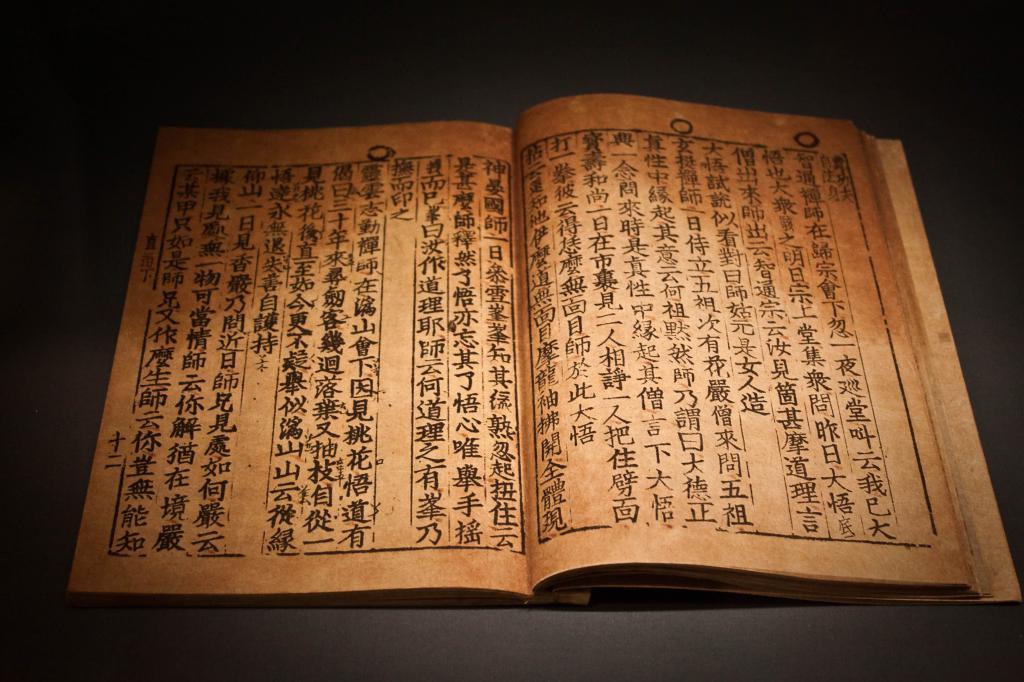 智通禪師在歸宗會下忽一夜巡堂叫云我已大
悟也大衆駭之明日宗上堂集衆問昨日大悟底
僧出來師出云智通宗云汝見箇甚摩道理言
大悟試說似看對曰師姑元是女人造
玄挺禪師一日侍立五祖次有華嚴僧來問五祖
眞性中緣起其意云何祖黙然師乃謂曰大德正
興一念問來時是眞性中緣起其僧言下大悟
寶壽和尚一日在市裏見二人相諍一人把住劈面
打一拳彼云得恁麽無面目師於此大悟
云還知他伊麽道無面目摩龍袖拂開全體現
神晏國師一日叅雪峯峯知其緣熟忽起扭住云
是甚麽師釋然了悟亦忘其了悟心唯擧手搖
曳而已峯曰汝作道理耶師云何道理之有峯乃
撫而印之
靈雲志勤禪師在潙山會下因見桃花悟道有
偈曰三十年來尋劒客幾迴落葉又抽枝自從一
見桃花後直至如今更不疑擧似潙山山云從緣
悟達永無退失善自護持
仰山一日見香嚴乃問近日師兄見處如何嚴云
據我見處無一物可當情師云你解猶在境嚴
云某甲只如是師兄又作摩生師云你豈無能知
直指下
十二